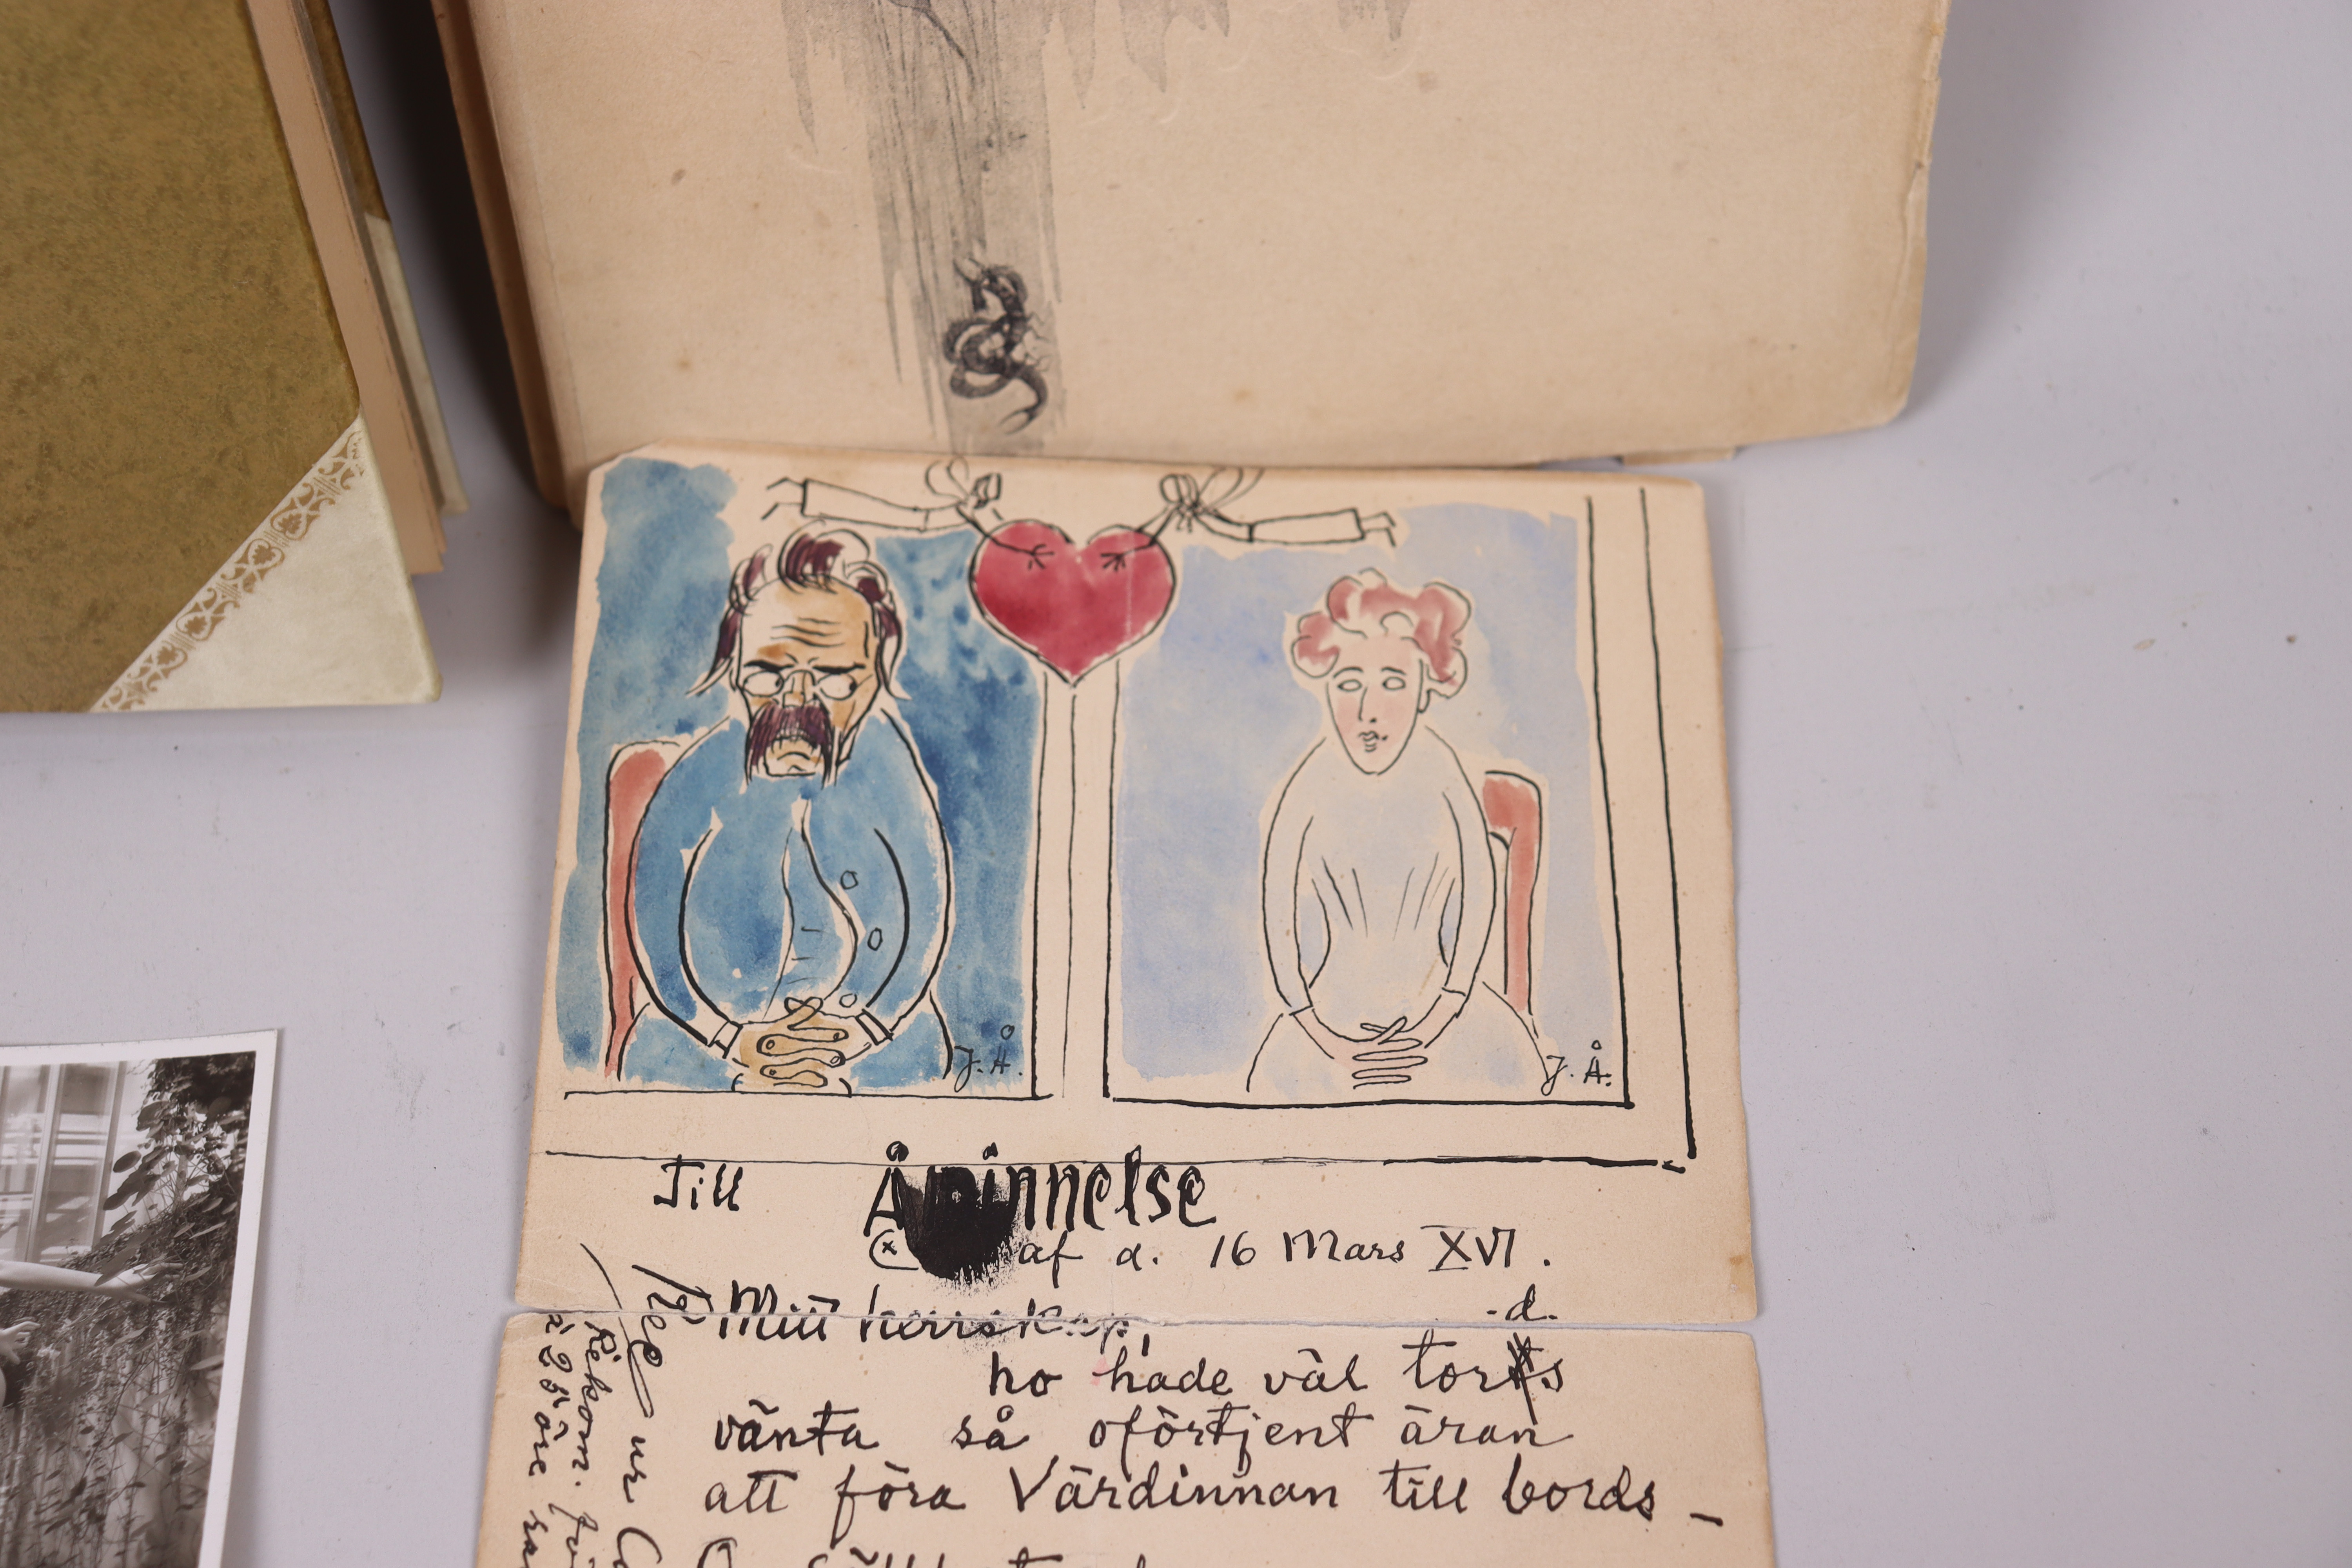 J. Å.
J. Å.
Till Åminnelse
(x af d. 16 Mars XVI.
Mitt herrskap,
-d.
ho hade väl torts
vänta så oförtjent äran
att föra Värdinnan till bords -
Rekom. för
25 öre
ur